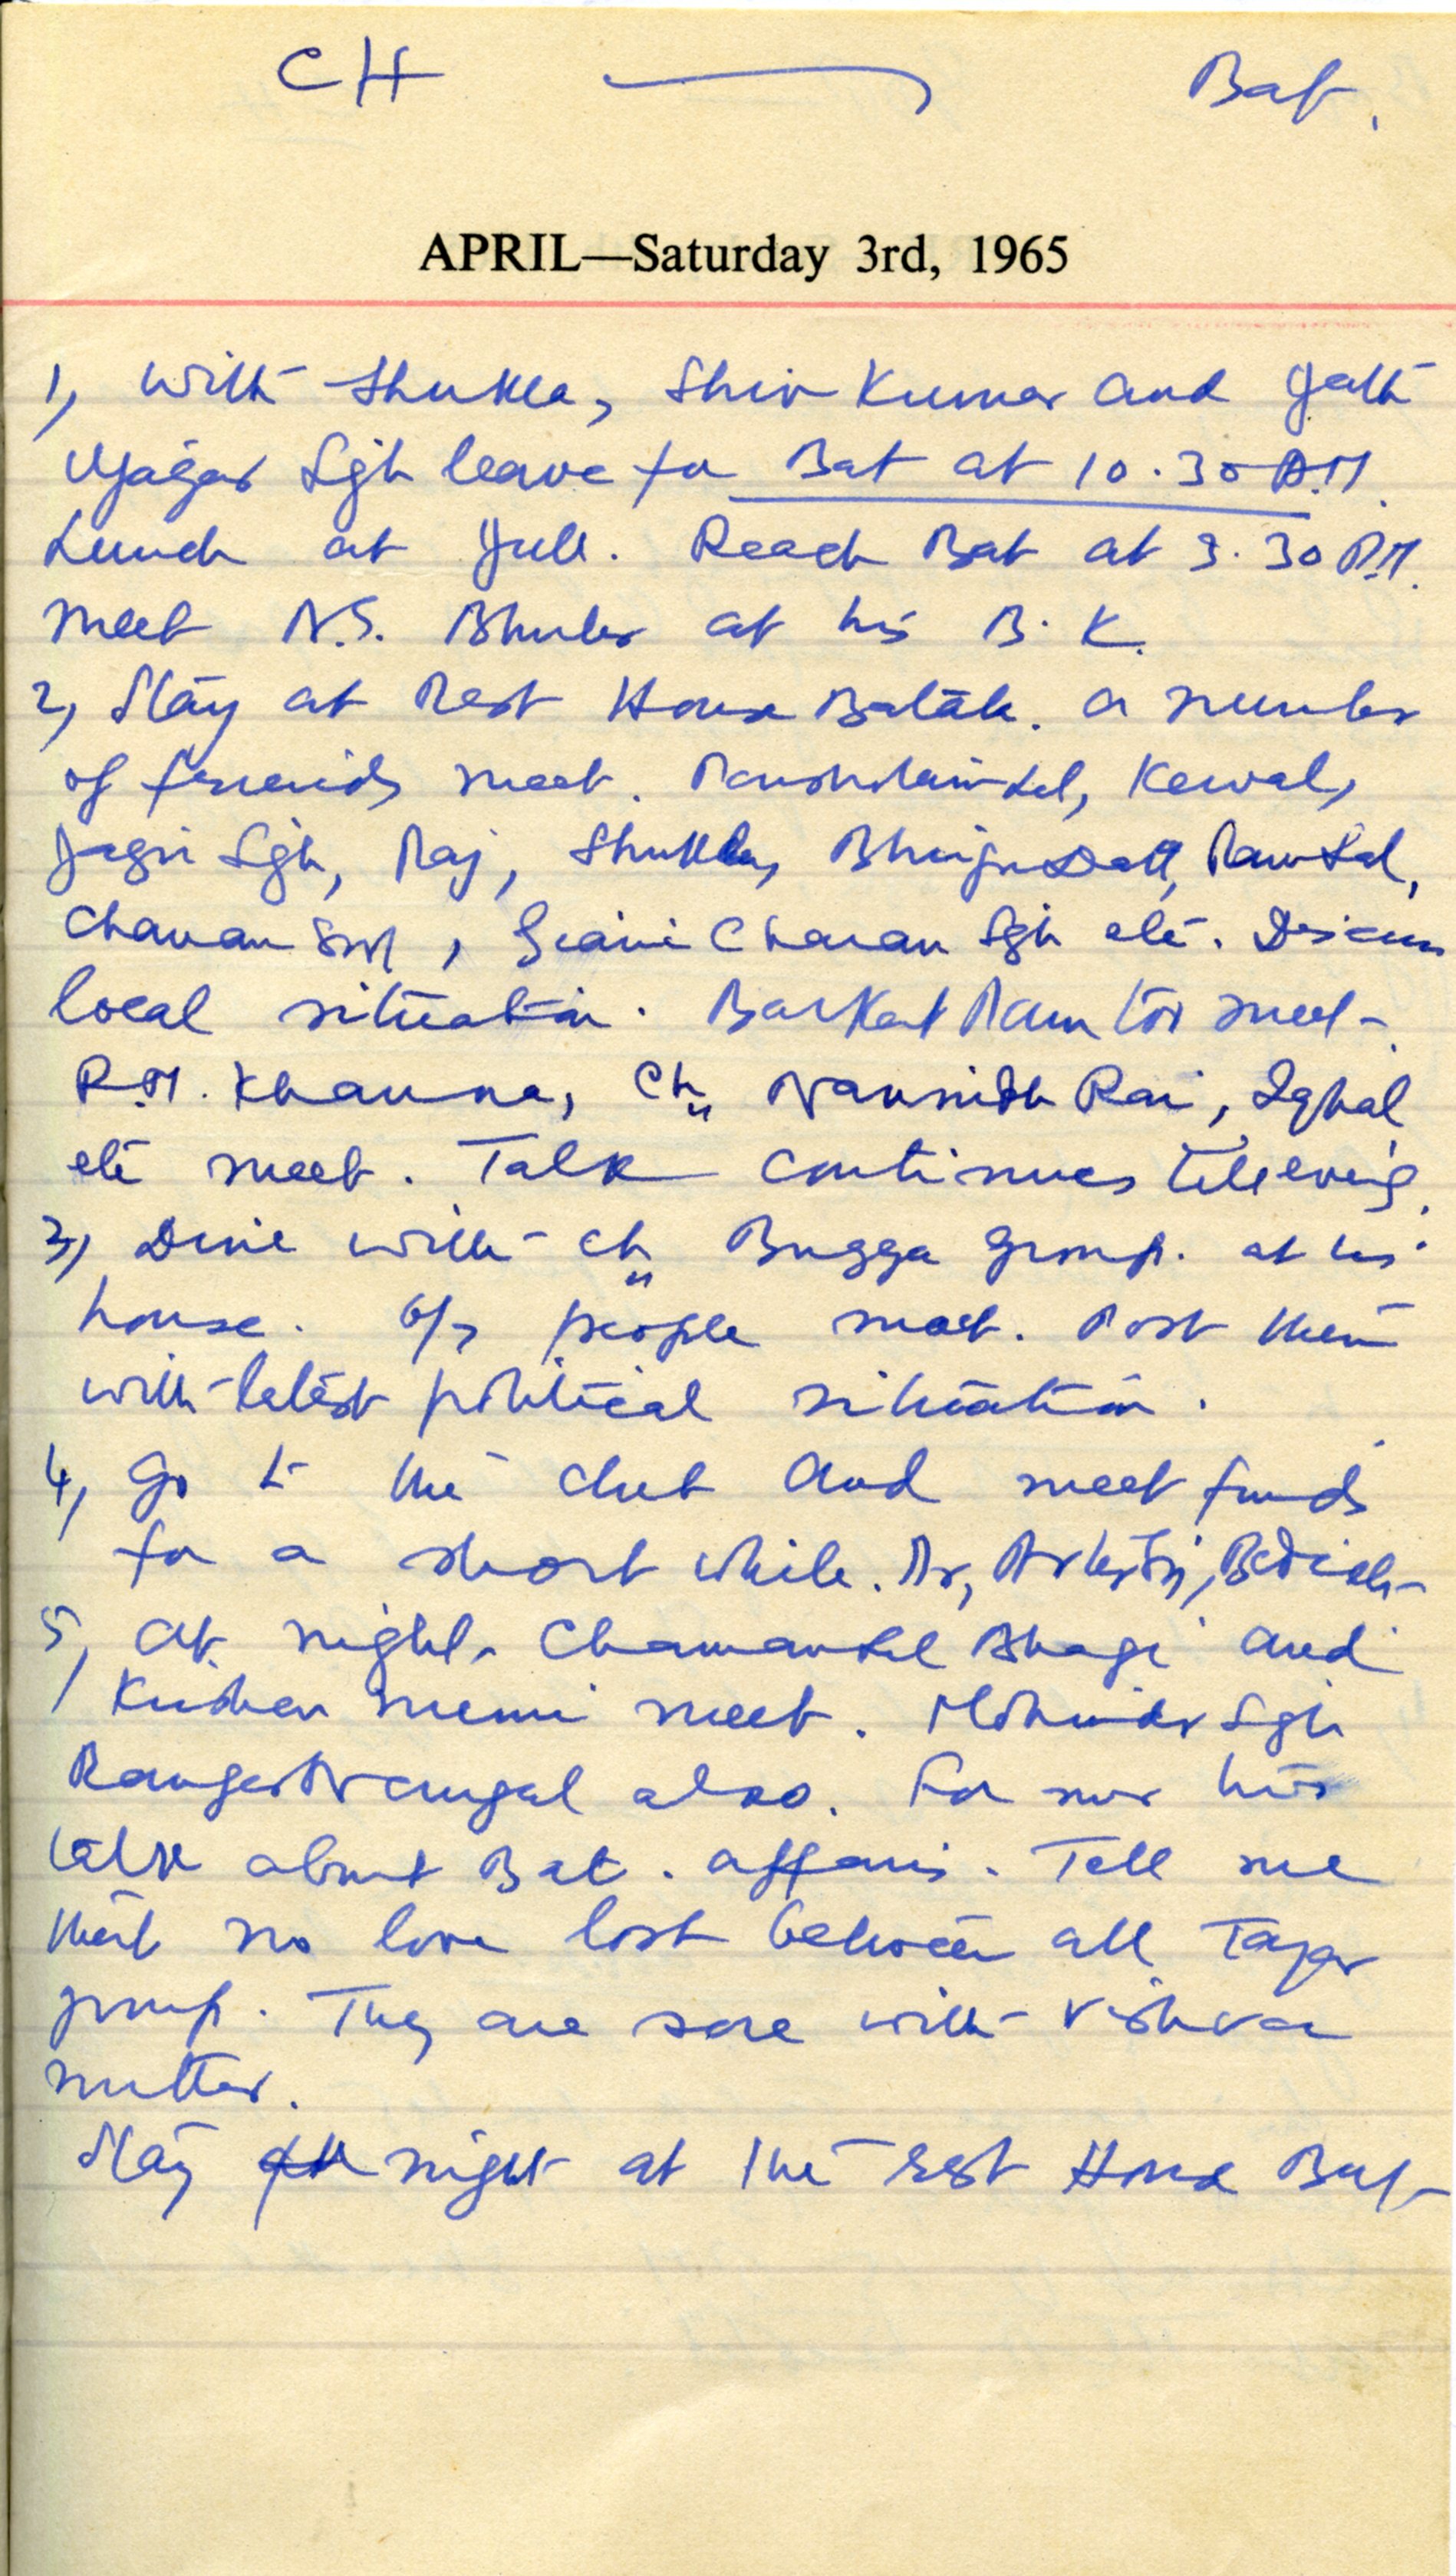 CH Bat.
APRIL—Saturday 3rd, 1965
1, With Shukla, Shiv Kumar and Jath
Ujagar Sgh leave for Bat at 10.30 A.M.
Lunch at Jull. Reach Bat at 3.30 P.M.
meet N.S. Bhuler at his B.K.
2, Stay at Rest House Batala. A number
of friends meet. Kewal,
Jagir Sgh, Raj, Shukla, Bhrigu Datt, Ram Lal,
Charan Sgh etc. Discuss
local situation. Barkat Ram too meet.
R.M. Khanna, Ch. Naunidh Rai, Iqbal
etc meet. Talk continues till evening.
3, Dine with Ch. Bugga group. at his
house. 6/7 people meet. Post them
with latest political situation.
4, Go to the club and meet friends
for a short while. Dr,
5, At night Chaman Lal Bhagi and
Krishen meet. Mohinder Sgh
Rangar Nangal also. For our his
talk about Bat. affairs. Tell me
that no love lost between all Taper
group. They are sore with Vishva
mitter.
Stay night at the rest House Bat